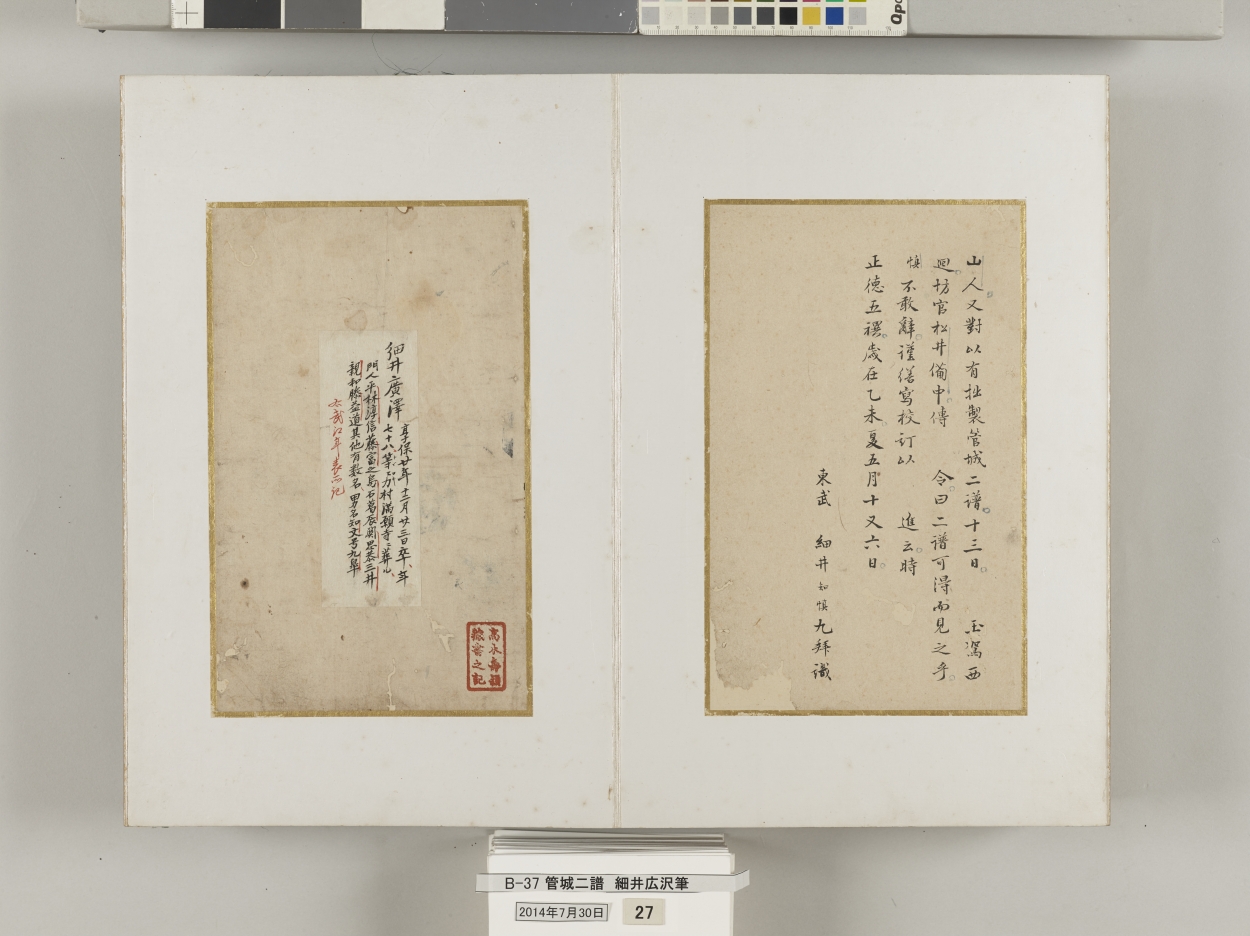 山人又對以有拙製管城二譜十三日 玉駕西
迴坊官松井備中傳 令曰二譜可得而見之乎
慎不敢辭謹繕寫校訂以 進云時
正德五禩歲在乙未夏五月十又六日
東武 細井知慎九拜識
細井廣澤 享保廿年十二月廿三日卒年
七十八等々力村滿願寺ニ葬ル
門人平林淳信藤富之烏石葛辰関思恭三井
親和勝益道其他有数名男名知文号九皐
右武江年表而記
高永壽
之記
B-37 管城二譜 細井広沢筆
2014年7月30日
27